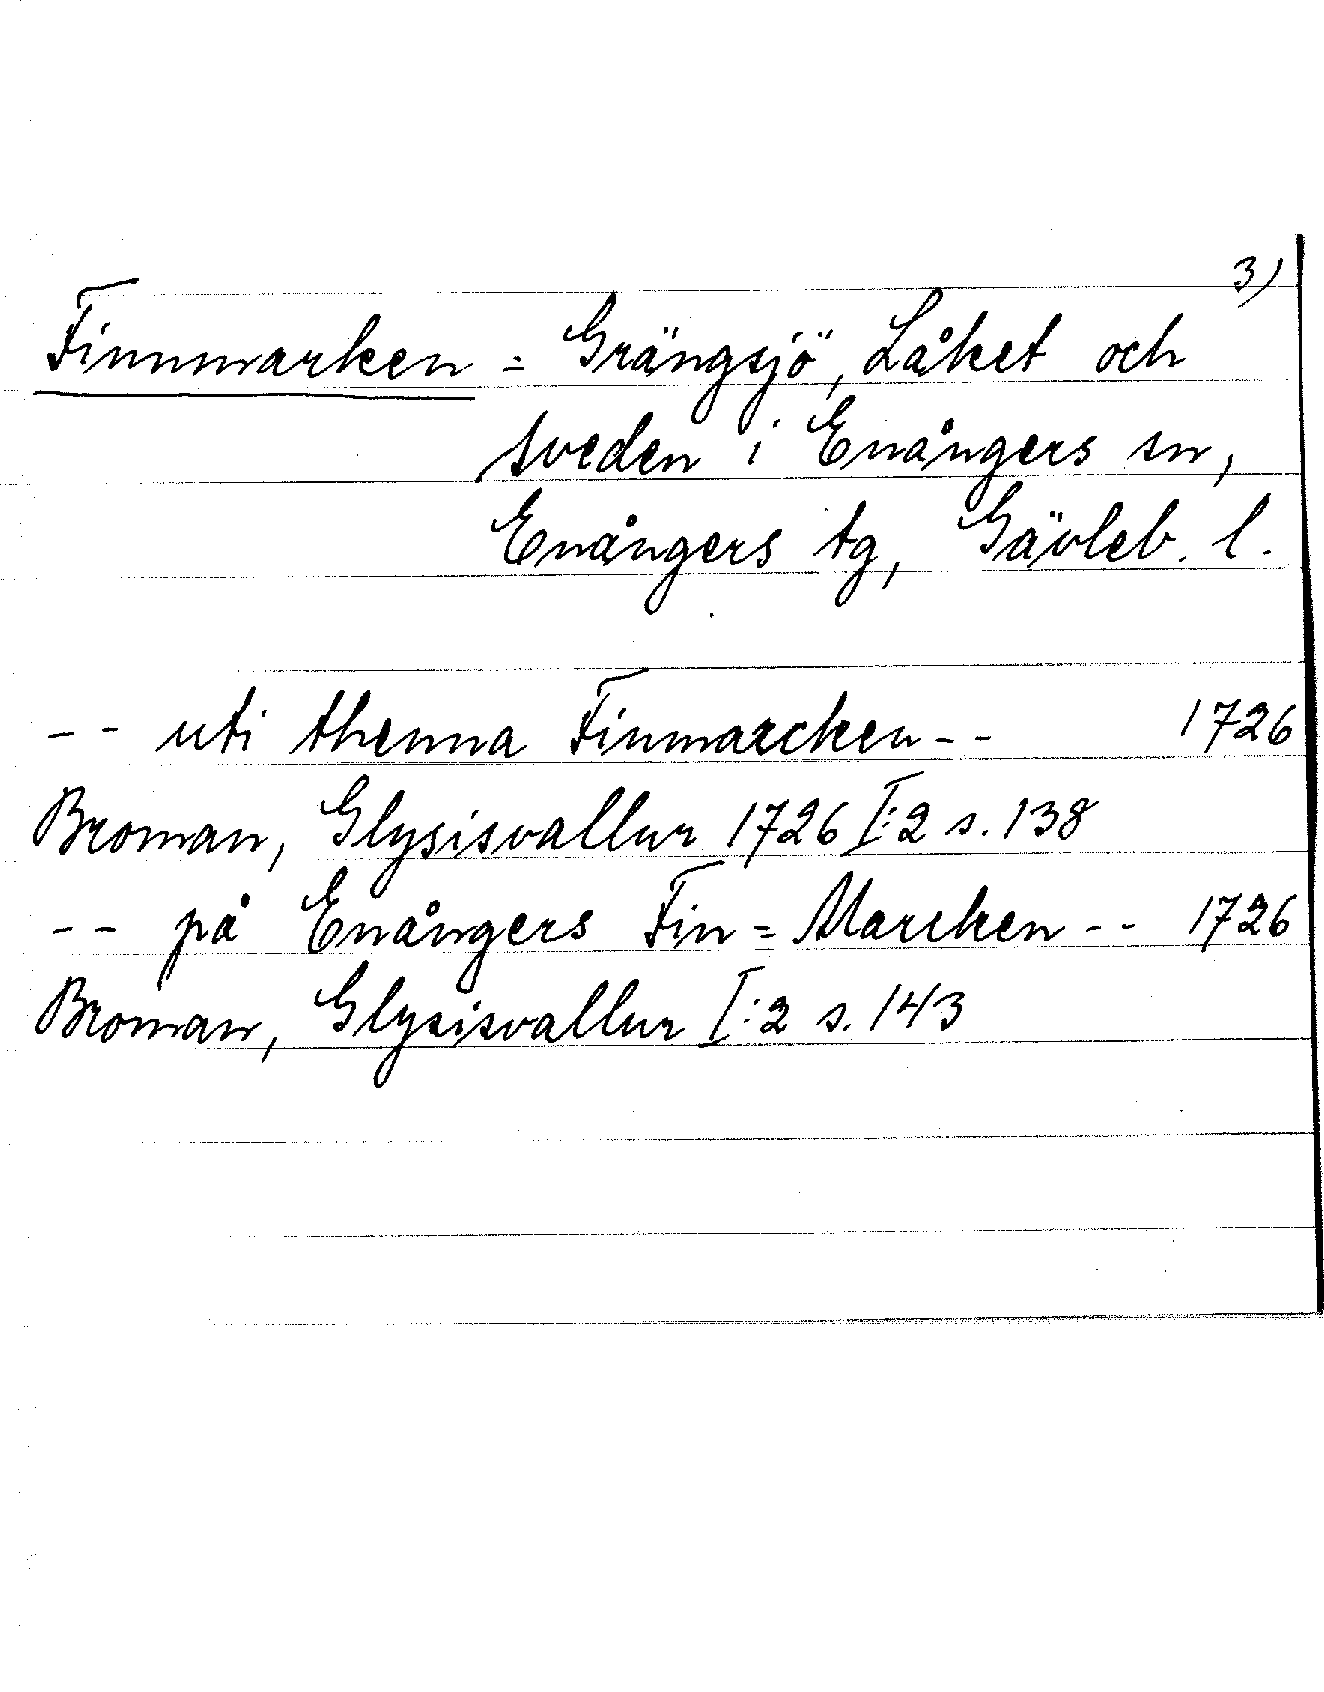 3)
Finnmarken = Grängsjö, Låket och
Sveden i Enångers sn,
Enångers tg, Gävleb. l.
-- uti thenna Finmarcken-- 1726
Broman, Glysisvallur 1726 I:2 s. 138
-- på Enångers Fin=Marcken -- 1726
Broman, Glysisvallur I:2 s. 143